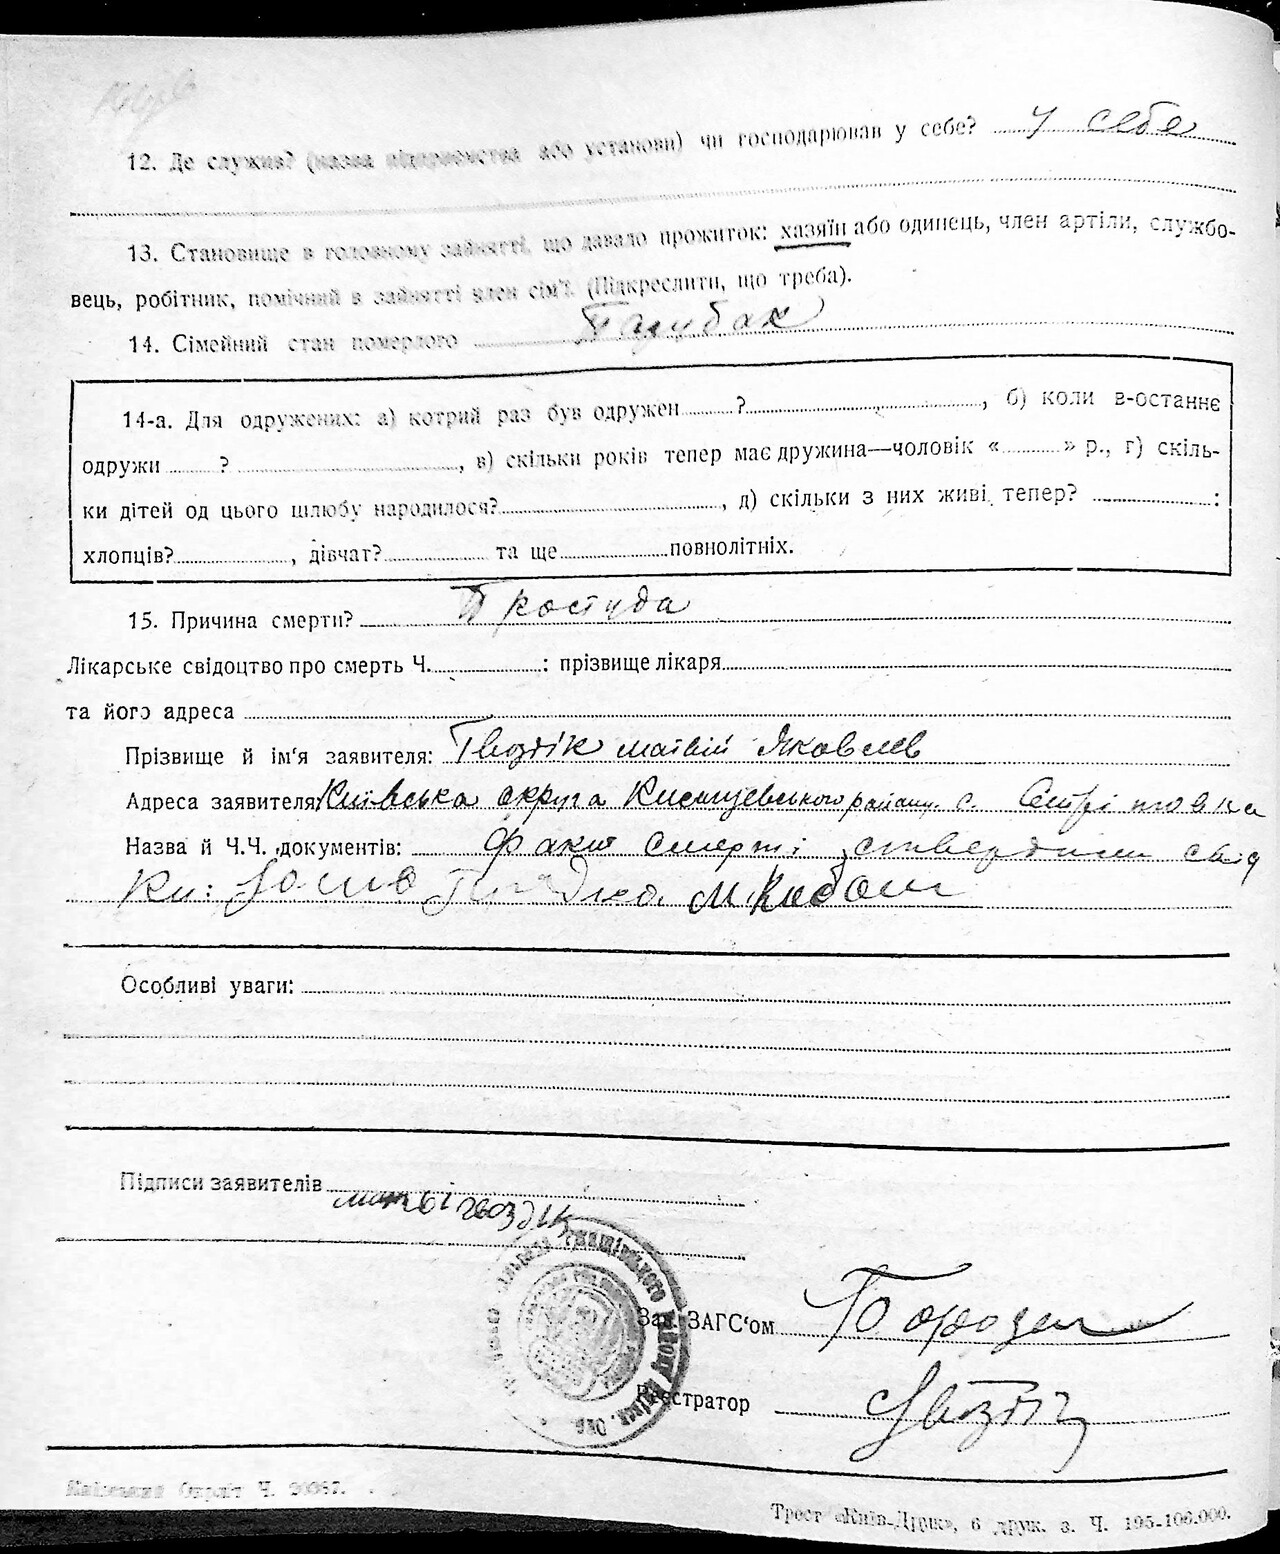 12. Де служив? (назва підприємства або установи) чи господарював у себе? У себе
13. Становище в головному зайнятті, що давало прожиток: хазяїн або одинець, член артіли, службо-
вець, робітник, помічний в зайнятті член сім'ї. (Підкреслити, що треба).
14. Сімейний стан померлого Парубак
14-а. Для одружених: а) котрий раз був одружен ? , б) коли в-останнє
одружи ? , в) скільки років тепер має дружина—чоловік « » р., г) скіль-
ки дітей од цього шлюбу народилося? , д) скільки з них живі тепер? :
хлопців? , дівчат? та ще повнолітніх.
15. Причина смерти? Простуда
Лікарське свідоцтво про смерть Ч. : прізвище лікаря
та його адреса
Прізвище й ім'я заявителя: Гвоздік Матвій Яковлев
Адреса заявителя Київська округа району с.
Назва й Ч.Ч. документів: Факт смерті ствердили свід
ки:
Особливі уваги:
Підписи заявителів гвоздік
Зав. ЗАГС'ом
Реєстратор Гвоздік
Київський Окрліт Ч.
Трест «Київ-Друк», 6 друк. з. Ч. 195-106.000.